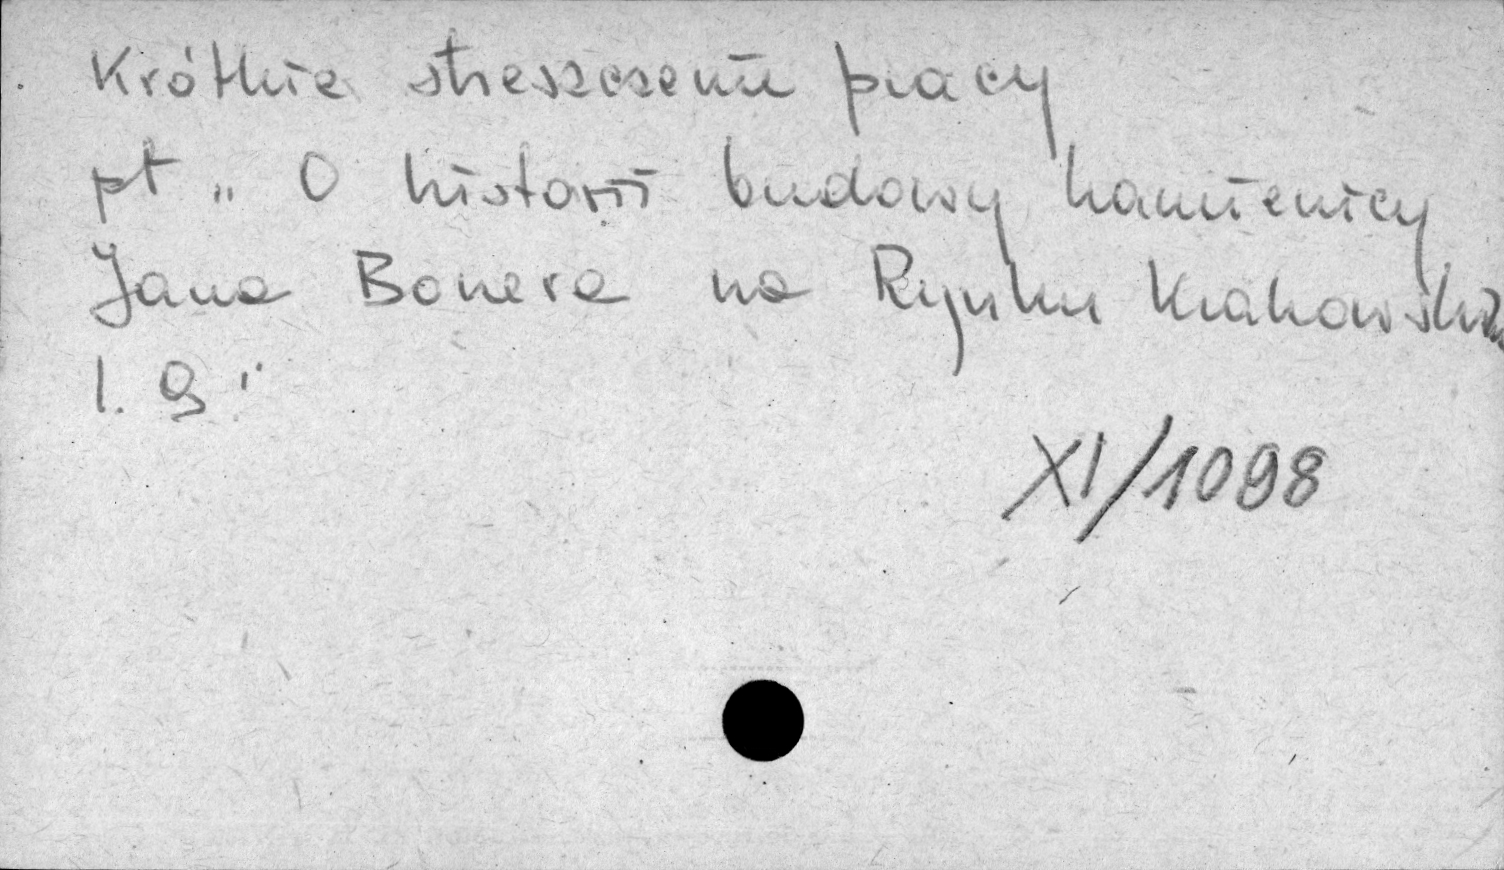 Krótkie streszczenie pracy
pt „ O historii budowy kamienicy
Jana Bonera na Rynku Krakowskim
l. 9"
XI/1098